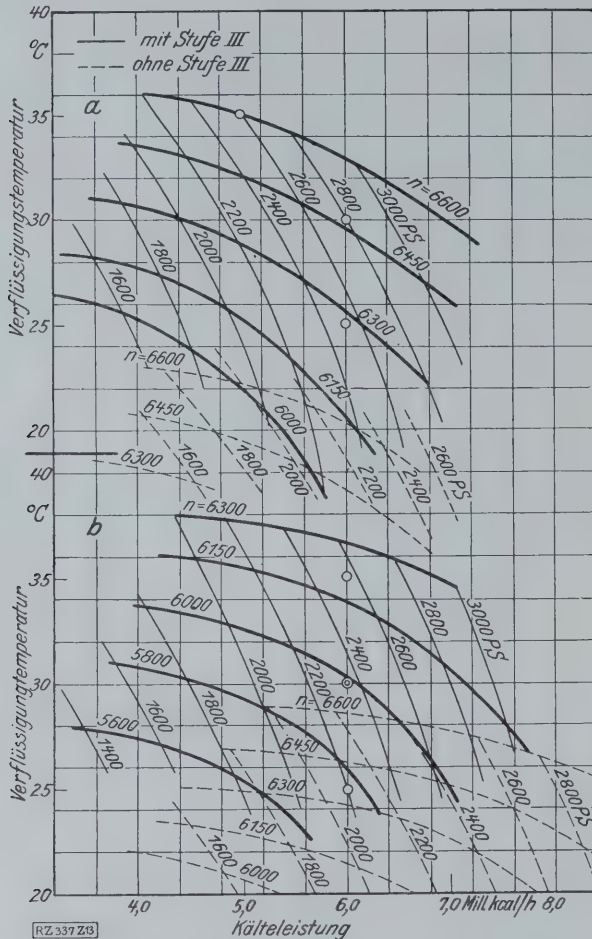 40
°C
mit Stufe III
ohne Stufe III
35
a
Verflüssigungstemperatur
30
25
20
n=6600
6450
6300
6150
6000
1600
1800
2000
2200
2400
2600
2800
3000PS
n=6600
6450
6300
1600
1800
2000
2200
2400
2600 PS
40
°C
b
35
Verflüssigungtemperatur
30
25
20
n=6300
6150
6000
5800
5600
1400
1600
1800
2000
2200
2400
2600
2800
3000PS
n=6600
6450
6300
6150
6000
1600
1800
2000
2200
2400
2600
2800PS
4,0
5,0
6,0
7,0 Mill kcal/h 8,0
Kälteleistung
RZ 337 Z13